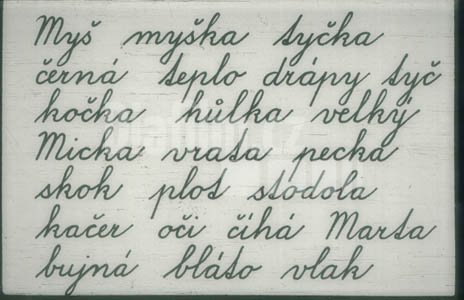 Myš myška tyčka
černá teplo drápy tyč
kočka hůlka velký
Micka vrata pecka
skok plot stodola
kačer oči číhá Marta
bujná bláto vlak